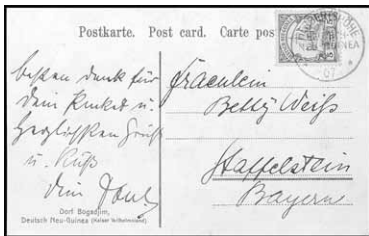 Postkarte. Post card. Carte pos
besten Dank für
dein Paket u.
herzlichsten Gruß
u. Kuß
dein
Dorf Bogadjim,
Deutsch Neu-Guinea (Kaiser Wilhelmsland).
Fräulein
Betty Weiß
Staffelstein
Bayern
07